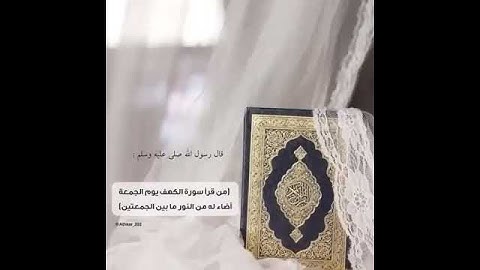 قال رسول الله صلى عليه وسلم :
(من قرأ سورة الكهف يوم الجمعة
أضاء له من النور ما بين الجمعتين)
@Athkar_202